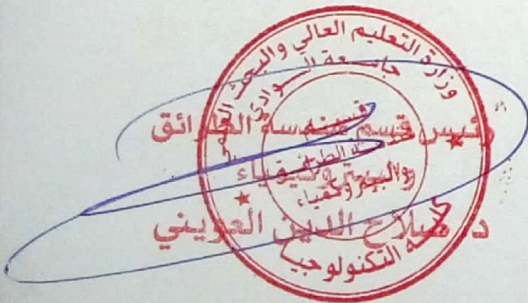 وزارة التعليم العالي والبحث العلمي
جامعة الوادي
قسم
رئيس قسم هندسة الطرائق
والبيتروكيمياء
د. صلاح الدين العويني
كلية التكنولوجيا